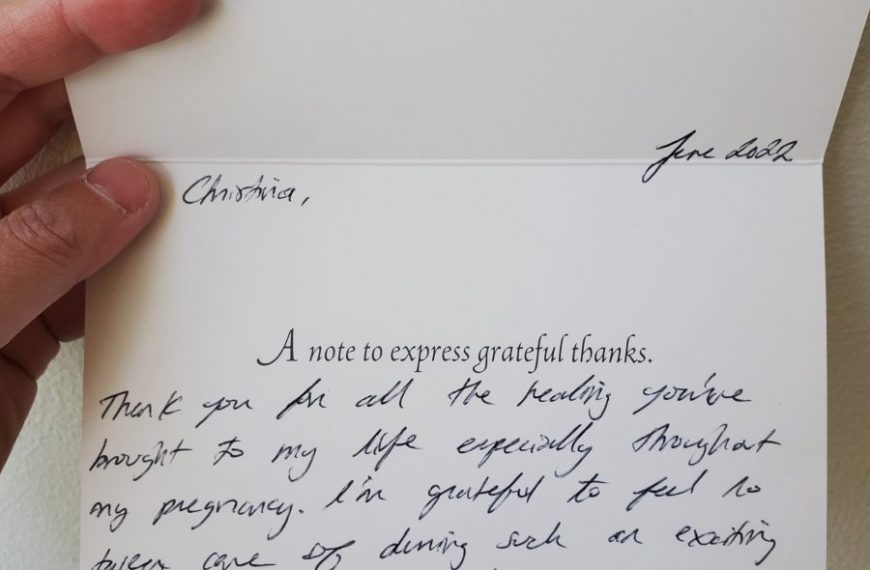 June 2022
Christina,
A note to express grateful thanks.
Thank you for all the healing you've
brought to my life especially throughout
my pregnancy. I'm grateful to feel so
taken care of during such an exciting